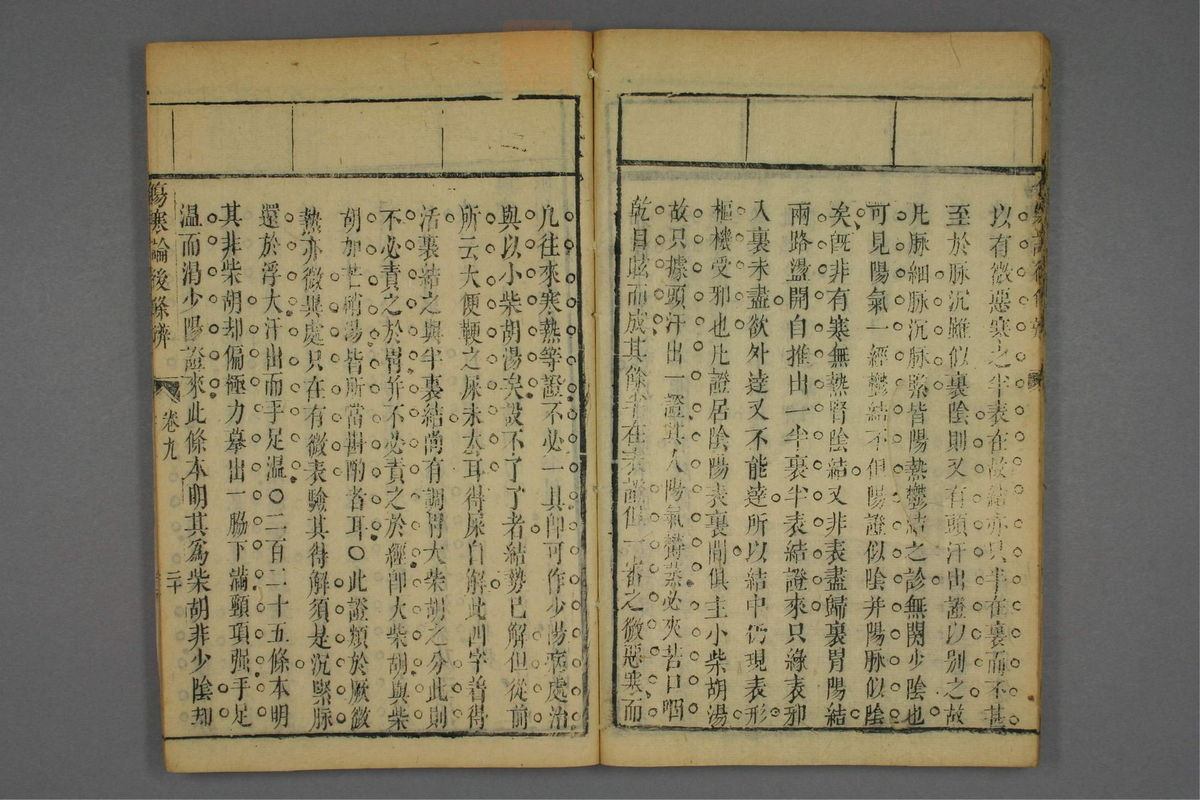 以有微惡寒之半表在故結亦只半在裏而不甚
至於脉沉雖似裏陰則又有頭汗出證以別之故
凡脉細脉沉脉緊皆陽熱鬱結之診無關少陰也
可見陽氣一經鬱結不但陽證似陰并陽脉似陰
矣旣非有寒無熱腎陰結又非表盡歸裏胃陽結
兩路盪開自推出一半裏半表結證來只緣表邪
入裏未盡欲外達又不能達所以結中仍現表形
樞機受邪也凡證居陰陽表裏間俱主小柴胡湯
故只據頭汗出一證其人陽氣鬱蒸必夾苦口咽
乾目眩而成其餘半在表證但一審之微惡寒而
凡往來寒熱等證不必一具卽可作少陽病處治
與以小柴胡湯矣設不了了者結勢已解但從前
所云大便鞕之屎未去耳得屎自解此四字着得
活裏結之與半裏結尚有調胃大柴胡之分此則
不必責之於胃并不必責之於經卽大柴胡與柴
胡加芒硝湯皆所當斟酌者耳○此證類於厥微
熱亦微異處只在有微表驗其得解須是沉緊脉
還於浮大汗出而手足溫○二百二十五條本明
其非柴胡却偏極力摹出一脇下滿頸項强手足
溫而渴少陽證來此條本明其爲柴胡非少陰却
傷寒論後條辨
卷九
二十